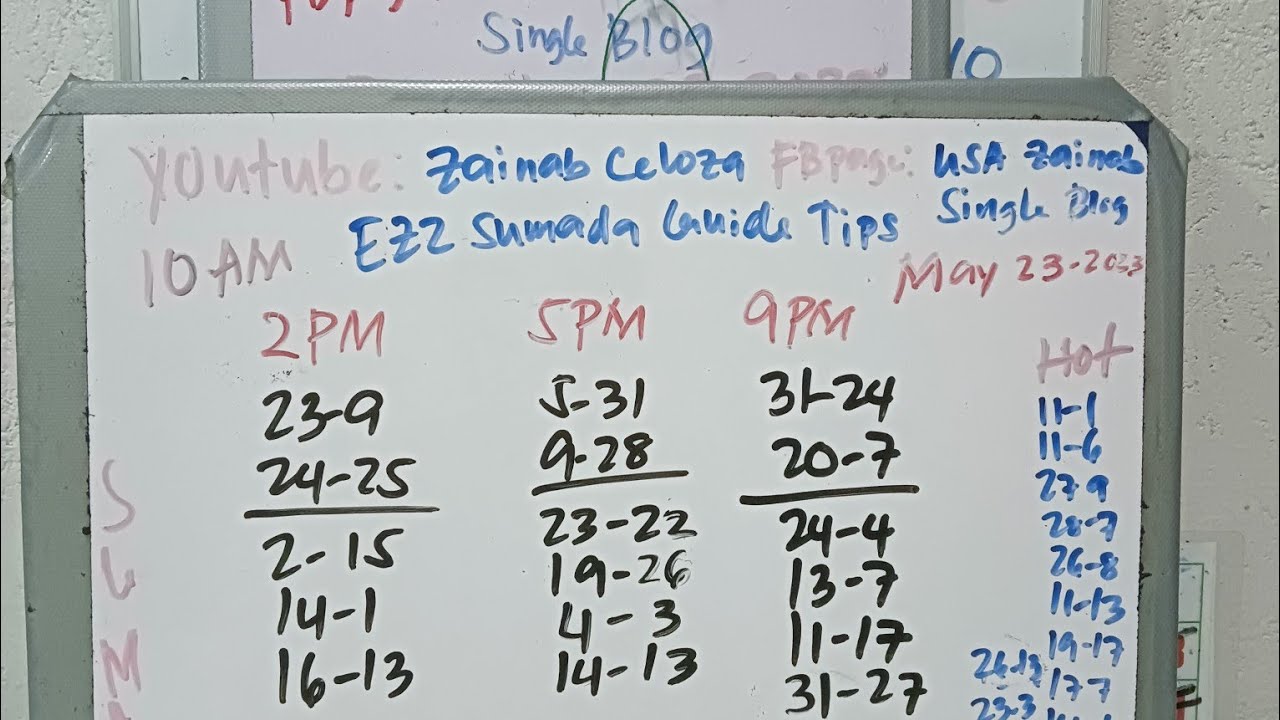 Single Blog
10
Youtube: Zainab Celoza FB page: USA Zainab
EZ2 Sumada Guide Tips Single Blog
10 AM
May 23-2023
2PM 5PM 9PM Hot
23-9 5-31 31-24 11-1
24-25 9-28 20-7 11-6
27-9
2-15 23-22 24-4 28-7
14-1 19-26 13-7 26-8
16-13 4-3 11-17 11-13
14-13 31-27 19-17
17-7
23-3
S
U
M